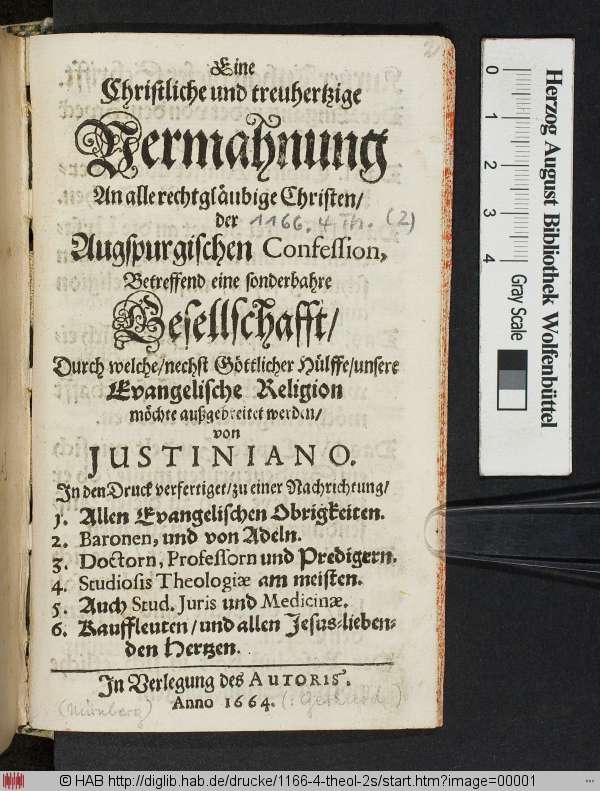 Eine
Christliche und treuhertzige
Vermahnung
An alle rechtgläubige Christen/
der
1166. 4 Th. (2)
Augspurgischen Confession,
Betreffend eine sonderbahre
Gesellschafft/
Durch welche/nechst Göttlicher Hülffe/unsere
Evangelische Religion
möchte außgebreitet werden/
von
JUSTINIANO.
In den Druck verfertiget/zu einer Nachrichtung/
1. Allen Evangelischen Obrigkeiten.
2. Baronen, und von Adeln.
3. Doctorn, Professorn und Predigern.
4. Studiosis Theologiæ am meisten.
5. Auch Stud. Juris und Medicinæ.
6. Kauffleuten/und allen Jesus-lieben-
den Hertzen.
In Verlegung des AUTORIS.
Anno 1664.
(Nürnberg)
0
1
2
3
4
Herzog August Bibliothek Wolfenbüttel
Gray Scale
© HAB http://diglib.hab.de/drucke/1166-4-theol-2s/start.htm?image=00001